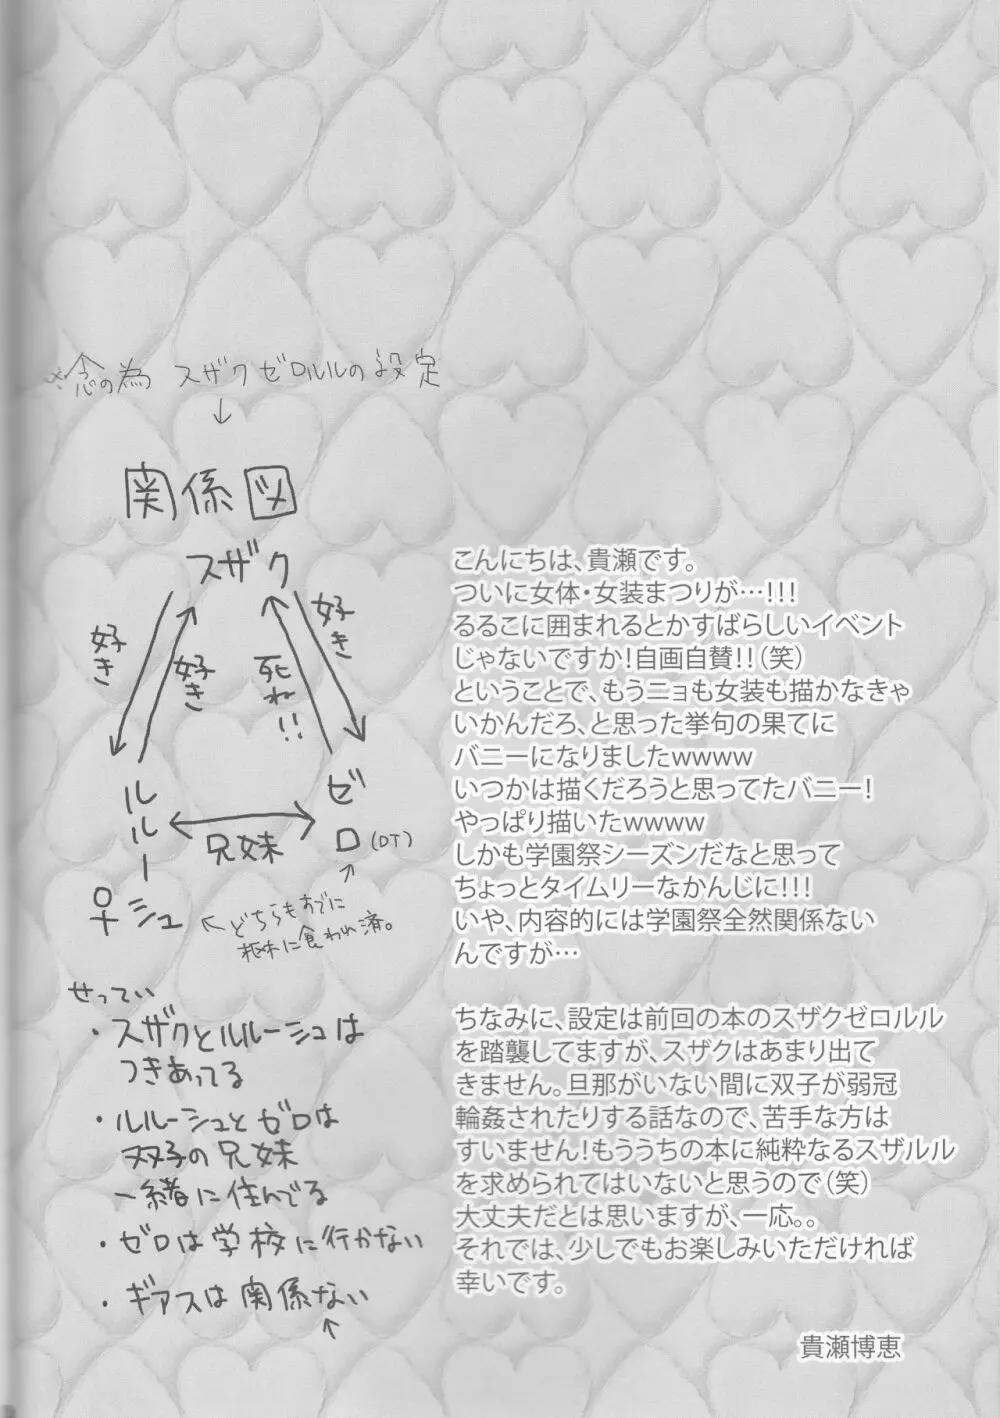 念の為 スザクゼロルルの設定
↓
関係図
スザク
好き
好き
死ね!!
好き
ルルーシュ
♀
兄妹
ゼロ(DT)
←どちらもすでに
枢木に食われ済。
せってい
・スザクとルルーシュは
つきあってる
・ルルーシュとゼロは
双子の兄妹
一緒に住んでる
・ゼロは学校に行かない
・ギアスは関係ない
↑
こんにちは、貴瀬です。
ついに女体・女装まつりが…!!!
るるこに囲まれるとかすばらしいイベント
じゃないですか!自画自賛!!(笑)
ということで、もうニョも女装も描かなきゃ
いかんだろ、と思った挙句の果てに
バニーになりましたwwww
いつかは描くだろうと思ってたバニー!
やっぱり描いたwwww
しかも学園祭シーズンだなと思って
ちょっとタイムリーなかんじに!!!
いや、内容的には学園祭全然関係ない
んですが…
ちなみに、設定は前回の本のスザクゼロルル
を踏襲してますが、スザクはあまり出て
きません。旦那がいない間に双子が弱冠
輪姦されたりする話なので、苦手な方は
すいません!もううちの本に純粋なるスザルル
を求められてはいないと思うので(笑)
大丈夫だとは思いますが、一応。。
それでは、少しでもお楽しみいただければ
幸いです。
貴瀬博恵